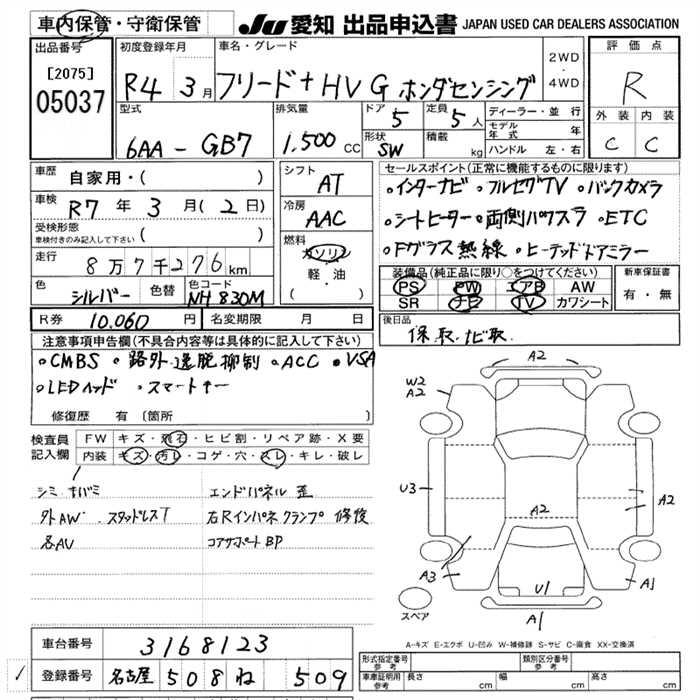 車内保管・守衛保管
JU 愛知 出品申込書 JAPAN USED CAR DEALERS ASSOCIATION
出品番号
[2075]
05037
初度登録年月
R4 3月
車名・グレード
フリード+ HV G ホンダセンシング
2WD
・
4WD
評価点
R
外装 内装
C C
型式
6AA - GB7
排気量
1,500 cc
ドア
5
定員
5人
形状
SW
積載
kg
ディーラー・並行
モデル年式 年
ハンドル 左・右
車歴
自家用・( )
車検
R7年 3月(2日)
受検形態
車検付きのみ記入して下さい
( )
走行
8万7千276km
色
シルバー
色替
色コード
NH830M
シフト
AT
冷房
AAC
燃料
ガソリン
軽・油
( )
R券 10,060円 名変期限 月 日
セールスポイント(正常に機能するものに限ります)
。インターナビ 。フルセグTV 。バックカメラ
。シートヒーター 。両側パワスラ 。ETC
。Fグラス熱線 。ヒーテッドドアミラー
装備品(純正品に限り○をつけてください)
PS PW エアB AW
SR ナビ TV カワシート
新車保証書
有・無
後日品
保、取、ナビ取
注意事項申告欄(不具合内容等は具体的に記入して下さい)
。CMBS 。路外逸脱抑制 。ACC 。VSA
。LEDヘッド 。スマートキー
修復歴 有(箇所
検査員記入欄
FW キズ・飛石・ヒビ割・リペア跡・X要
内装 キズ・汚レ・コゲ・穴・スレ・キレ・破レ
エンドパネル 歪
外AW スタッドレスT
右Rインパネクランプ 修後
各AU
コアサポートBP
A2
W2
A2
U3
A2
A2
A3
U1
A1
A1
スペア
A-キズ E-エクボ U-凹み W-補修跡 S-サビ C-腐食 XX-交換済
車台番号 3168123
登録番号 名古屋 508 ね 509
形式指定番号
参考
類別区分番号
参考
車庫証明用
参考
長さ cm 幅 cm 高さ cm